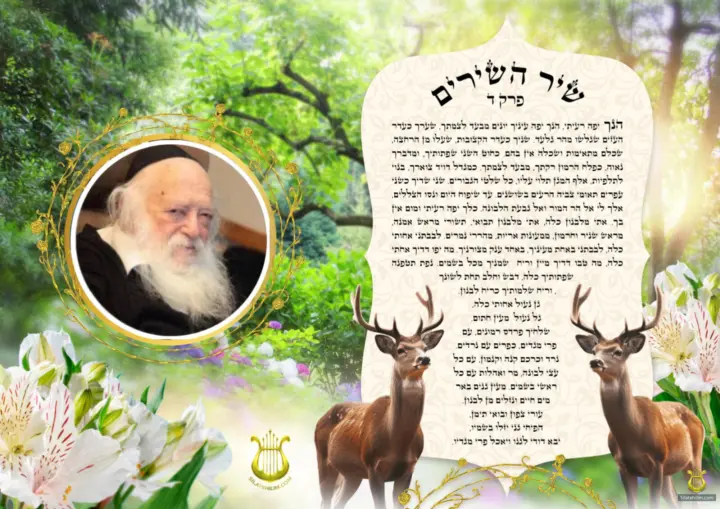 שיר השירים
פרק ד
הנך יפה רעיתי, הנך יפה עיניך יונים מבעד לצמתך, שערך כעדר
העזים שגלשו מהר גלעד. שניך כעדר הקצובות, שעלו מן הרחצה,
שכלם מתאימות ושכלה אין בהם. כחוט השני שפתותיך, ומדברך
נאוה, כפלח הרמון רקתך, מבעד לצמתך. כמגדל דויד צוארך, בנוי
לתלפיות, אלף המגן תלוי עליו, כל שלטי הגבורים. שני שדיך כשני
עפרים תאומי צביה הרעים בשושנים. עד שיפוח היום ונסו הצללים,
אלך לי אל הר המור ואל גבעת הלבונה. כלך יפה רעיתי ומום אין
בך. אתי מלבנון כלה, אתי מלבנון תבואי, תשורי מראש אמנה,
מראש שניר וחרמון, ממעונות אריות, מהררי נמרים. לבבתני אחותי
כלה, לבבתני באחת מעיניך, באחד ענק מצורניך. מה יפו דדיך אחתי
כלה, מה טבו דדיך מיין וריח שמניך מכל בשמים. נפת תטפנה
שפתותיך כלה, דבש וחלב תחת לשונך
, וריח שלמותיך כריח לבנון.
גן נעול אחותי כלה,
גל נעול מעין חתום.
שלחיך פרדס רמונים, עם
פרי מגדים, כפרים עם נרדים.
נרד וכרכם קנה וקנמון, עם כל
עצי לבונה, מר ואהלות עם כל
ראשי בשמים. מעין גנים באר
מים חיים ונזלים מן לבנון.
עורי צפון ובואי תימן,
הפיחי גני יזלו בשמיו,
יבא דודי לגנו ויאכל פרי מגדיו.